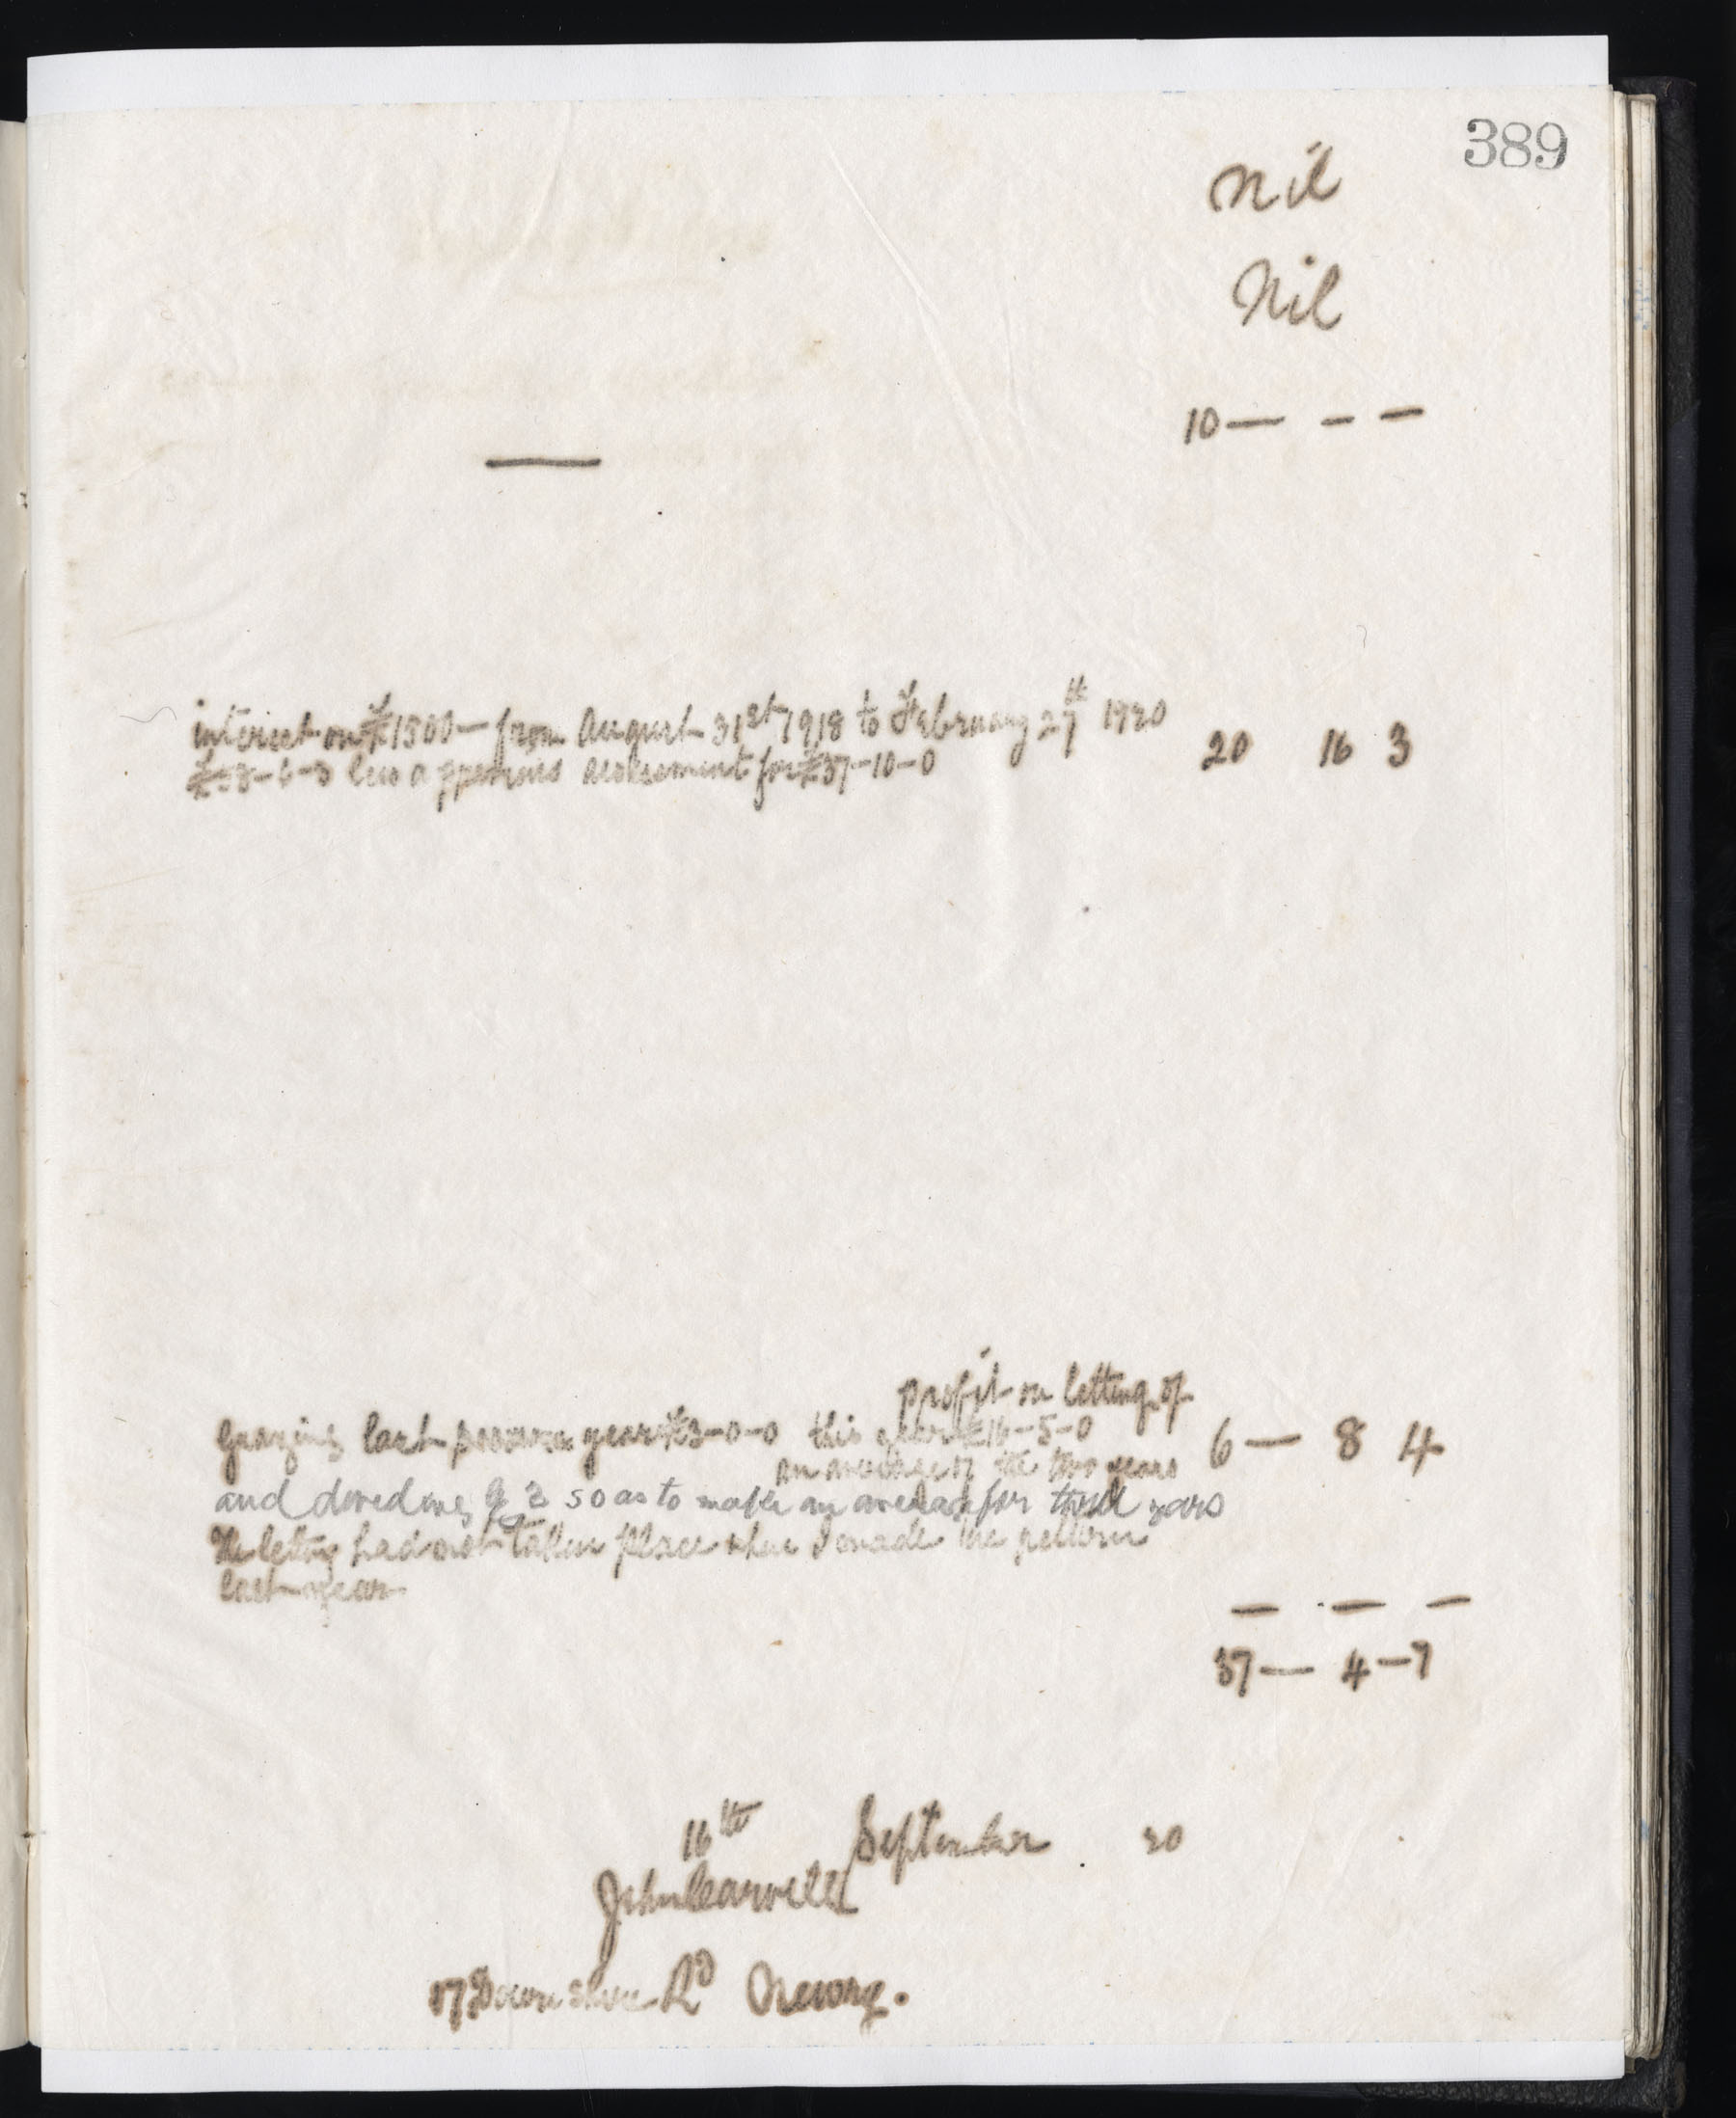 389
Nil
Nil
10 — - -
interest on £1500 — from August 31st 1918 to February 27th 1920
£58-6-3 less a previous assessment for £37-10-0
20 16 3
profit on letting of
Grazing last year £3-0-0 this year £16-5-0
6 — 8 4
an average of the two years
and so as to make an average for three years
The letting had not taken place when I made the return
last year
— — —
37 — 4 — 7
16th September 20
John
17 Downshire Rd Newry.